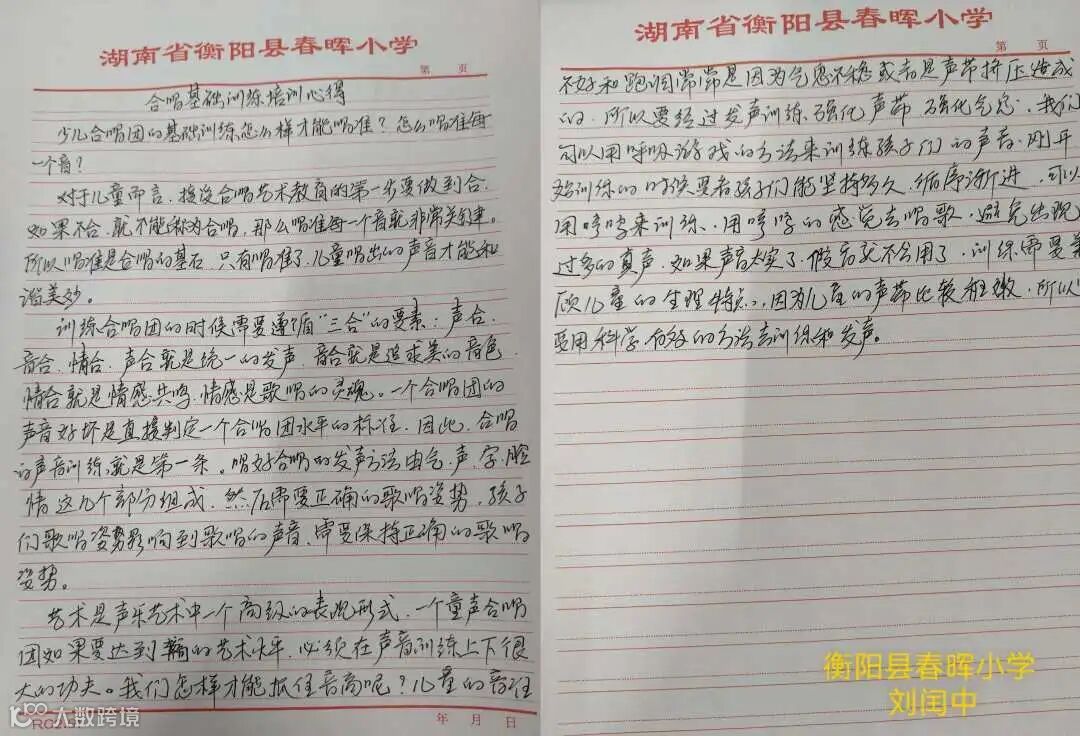 湖南省衡阳县春晖小学
第 页
合唱基础训练培训心得
少儿合唱团的基础训练怎么样才能唱准？怎么唱准每
一个音？
对于儿童而言，接受合唱艺术教育的第一步要做到合.
如果不合.就不能称为合唱，那么唱准每一个音就非常关键。
所以唱准是合唱的基石.只有唱准了，儿童唱出的声音才能和
谐美妙。
训练合唱团的时候需要遵循“三合”的要素：声合.
音合.情合.声合就是统一的发声.音合就是追求美的音色.
情合就是情感共鸣.情感是歌唱的灵魂。一个合唱团的
声音好坏是直接判定一个合唱团水平的标准.因此.合唱
的声音训练就是第一条。唱好合唱的发声方法由气.声.字.腔
情这几个部分组成.然后需要正确的歌唱姿势.孩子
们歌唱姿势影响到歌唱的声音、需要保持正确的歌唱
姿势。
艺术是声乐艺术中一个高级的表现形式.一个童声合唱
团如果要达到的艺术水平.必须在声音训练上下很
大的功夫。我们怎样才能抓住音高呢？儿童的音准
年 月 日
大数跨境
湖南省衡阳县春晖小学
第 页
不好和跑调常常是因为气息不稳或者是声带挤压造成
的.所以要经过发声训练.强化声带.强化气息.我们
可以用呼吸游戏的方法来训练孩子们的声音.刚开
始训练的时候要看孩子们能坚持多久.循序渐进.可以
用哼哼来训练.用哼哼的感觉去唱歌.避免出现
过多的真声.如果声音太实了.假声就不会用了.训练需要兼
顾儿童的生理特点.因为儿童的声带比较稚嫩.所以
要用科学有效的方法去训练和发声。
衡阳县春晖小学
刘闰中